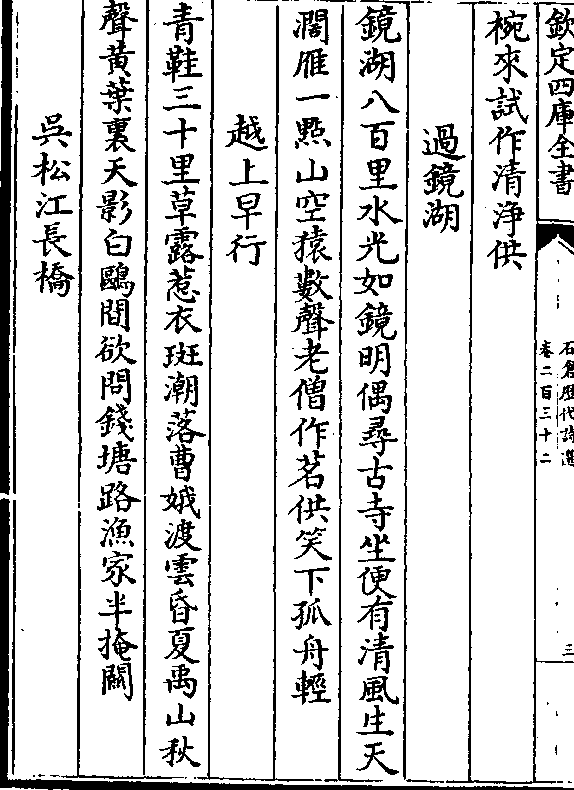 欽定四庫全書
石倉歷代詩選
卷二百三十二
三
椀來試作清浄供
過鏡湖
鏡湖八百里水光如鏡明偶尋古寺坐便有清風生天
濶雁一㸃山空猿數聲老僧作茗供笑下孤舟輕
越上早行
青鞋三十里草露惹衣斑潮落曹娥渡雲昏夏禹山秋
聲黄葉裏天影白鷗間欲問錢塘路漁家半掩關
吳松江長橋